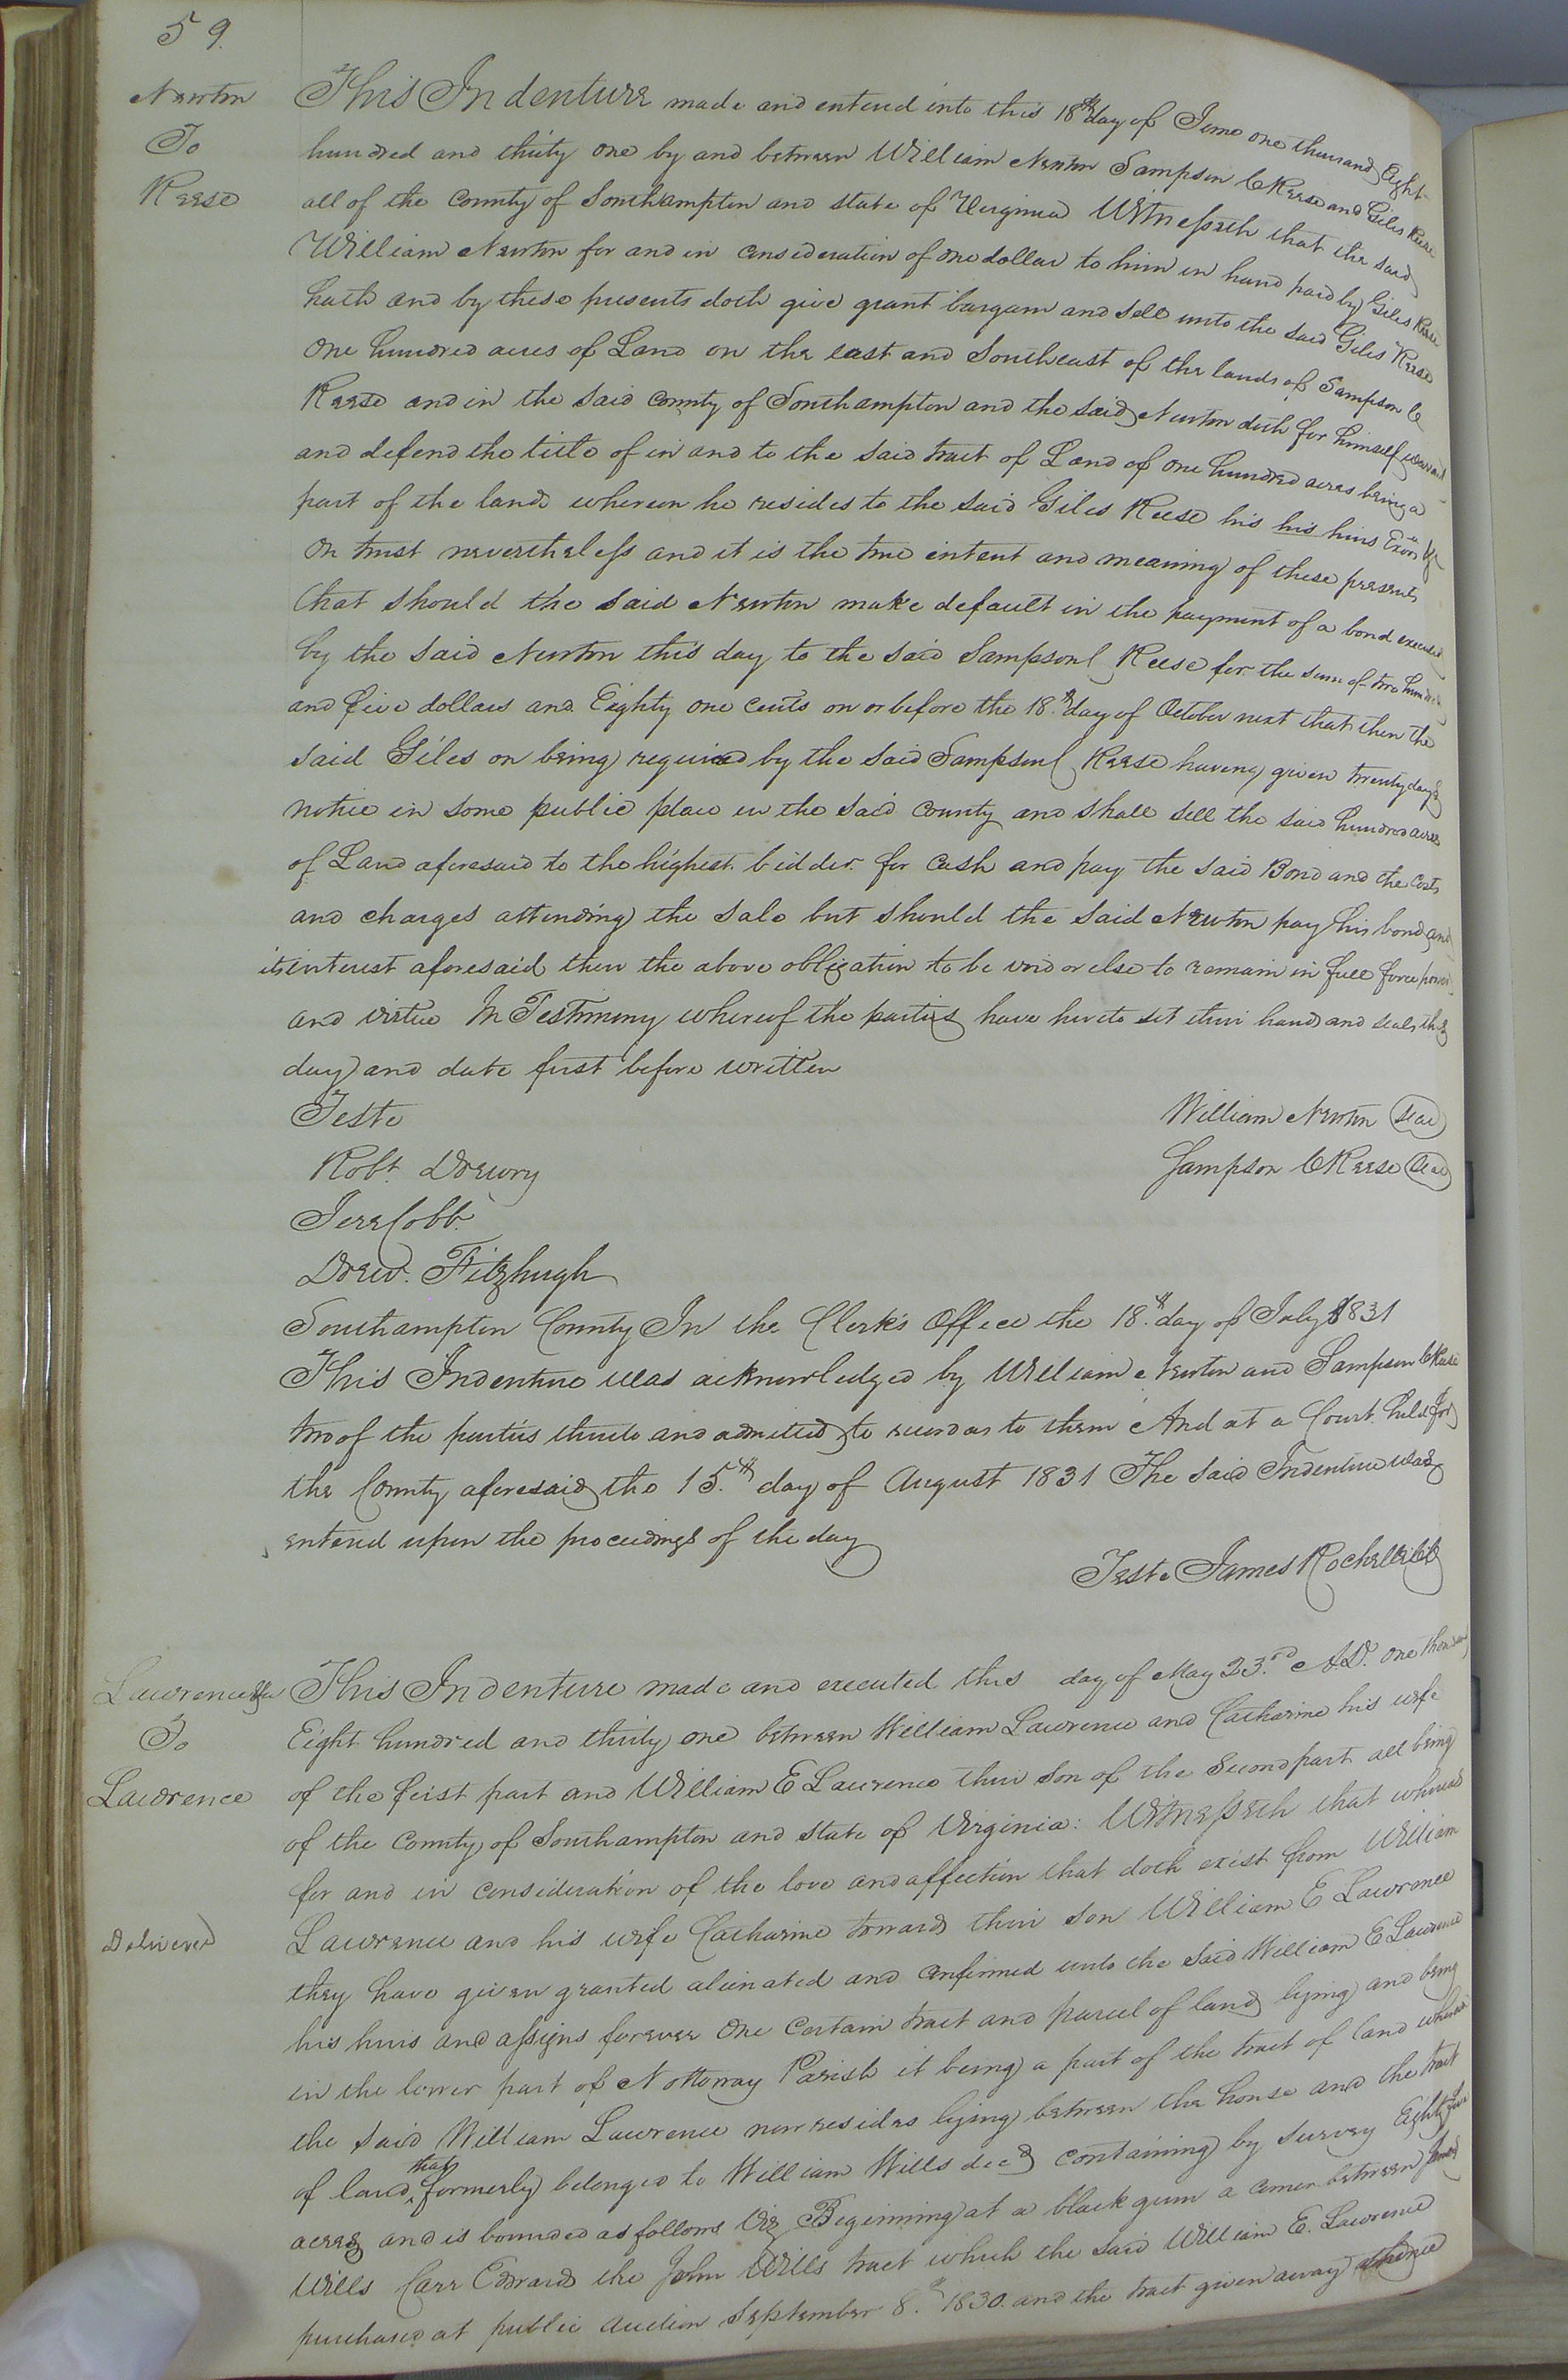 59.
Newton
To
Reese
This Indenture made and entered into this 18th day of June one thousand Eight
hundred and thirty one by and between William Newton Sampson C Reese and Giles Reese
all of the County of Southampton and state of Virginia Witnesseth that the said
William Newton for and in consideration of one dollar to him in hand paid by Giles Reese
hath and by these presents doth give grant bargain and sell unto the said Giles Reese
One hundred acres of Land on the east and Southeast of the lands of Sampson C
Reese and in the said County of Southampton and the said Newton doth for himself warrant
and defend the title of in and to the said tract of Land of one hundred acres being a
part of the lands whereon he resides to the said Giles Reese his his heirs Exors &c
On trust nevertheless and it is the true intent and meaning of these presents
that should the said Newton make default in the payment of a bond executed
by the said Newton this day to the said Sampson C Reese for the sum of two hundred
and five dollars and Eighty one Cents on or before the 18th day of October next that then the
said Giles on being required by the said Sampson C Reese having given twenty days
notice in some public place in the said County and shall sell the said hundred acres
of Land aforesaid to the highest bidder for Cash and pay the said Bond and the Costs
and charges attending the sale but should the said Newton pay his bond and
its interest aforesaid then the above obligation to be void or else to remain in full force power
and virtue In Testimony whereof the parties have hereto set their hands and seals the
day and date first before written
Teste
William Newton (seal)
Robt. Drewry
Sampson C Reese (seal)
Jere Cobb
Drew. Fitzhugh
Southampton County In the Clerk's Office the 18th day of July 1831
This Indenture was acknowledged by William Newton and Sampson C Reese
two of the parties thereto and admitted to record as to them And at a Court held for
the County aforesaid the 15th day of August 1831 The said Indenture was
entered upon the proceedings of the day
Teste James Rochelle Clk
Lawrence &ux
To
Lawrence
Delivered
This Indenture made and executed this day of May 23rd A.D. one thousand
Eight hundred and thirty one between William Lawrence and Catharine his wife
of the first part and William E Lawrence their son of the Second part all being
of the County of Southampton and State of Virginia: Witnesseth that whereas
for and in consideration of the love and affection that doth exist from William
Lawrence and his wife Catharine towards their son William E Lawrence
they have given granted alienated and confirmed unto the said William E Lawrence
his heirs and assigns forever One Certain tract and parcel of land lying and being
in the lower part of Nottoway Parish it being a part of the tract of land whereon
the said William Lawrence now resides lying between the house and the tract
of land that formerly belonged to William Wills decd containing by survey Eighty five
acres and is bounded as follows Viz Beginning at a black gum a corner between James
Wills Carr Edwards the John Wills tract which the said William E. Lawrence
purchased at public auction September 8th 1830. and the tract given away thence